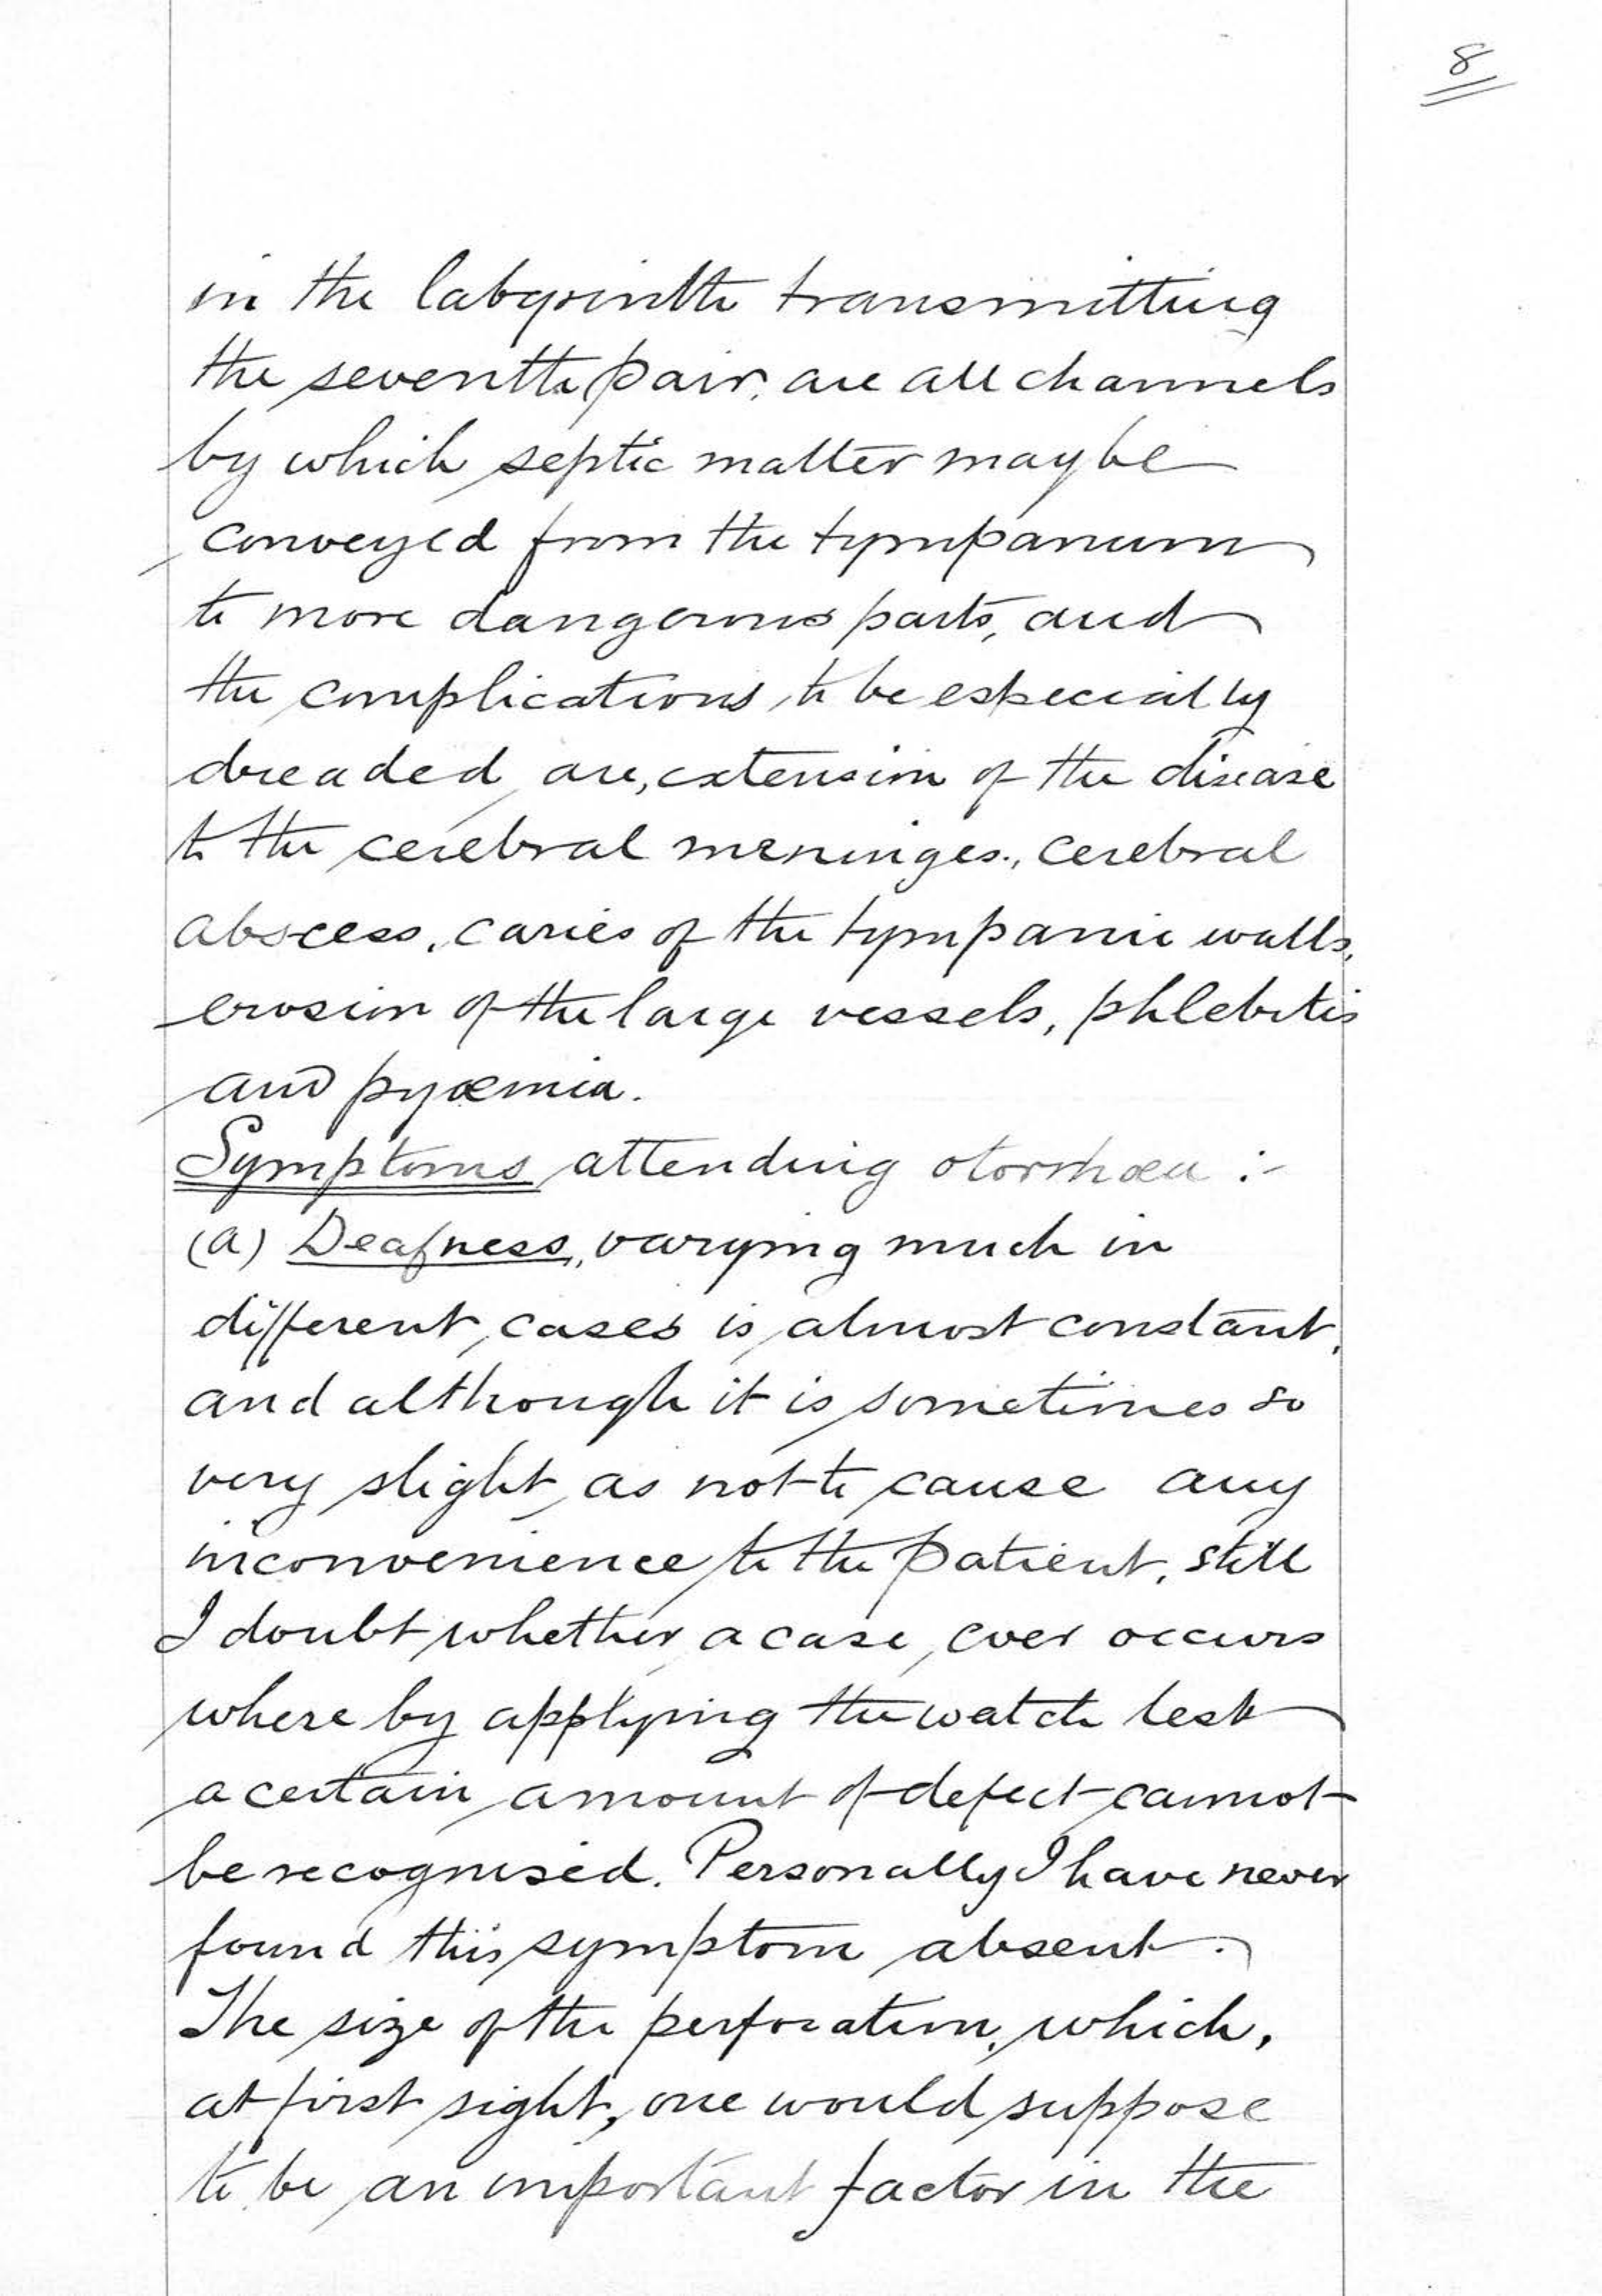 8
in the labyrinth transmitting
the seventh pair, are all channels
by which septic matter may be
conveyed from the tympanum
to more dangerous parts, and
the complications to be especially
dreaded are, extension of the disease
to the cerebral meninges, cerebral
abscess, caries of the tympanic walls,
erosion of the large vessels, phlebitis
and pyæmia.
Symptoms attending otorrhœa :-
(a) Deafness, varying much in
different cases is almost constant,
and although it is sometimes so
very slight as not to cause any
inconvenience to the patient, still
I doubt whether a case ever occurs
where by applying the watch test
a certain amount of defect cannot
be recognised. Personally I have never
found this symptom absent.
The size of the perforation, which,
at first sight, one would suppose
to be an important factor in the